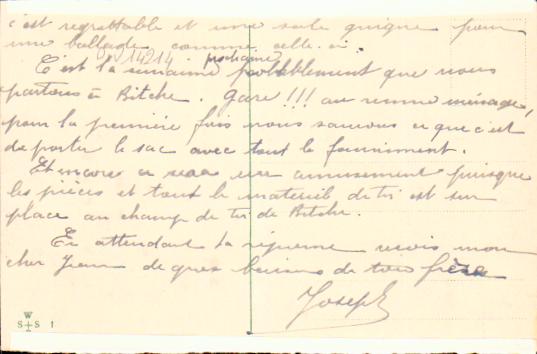 c'est regrettable et une sale guigne pour
une ballade comme celle-ci.
V14214 prochaine
C'est la semaine probablement que nous
partons à Bitche. Gare!!! au remue ménage,
pour la première fois nous saurons ce que c'est
de porter le sac avec tout le fourniment.
Et encore ce sera un amusement puisque
les pièces et tout le matériel de tir est sur
place au champ de tir de Bitche.
En attendant ta réponse reçois mon
cher Jean de gros baisers de ton frère
Joseph
W
S S 1